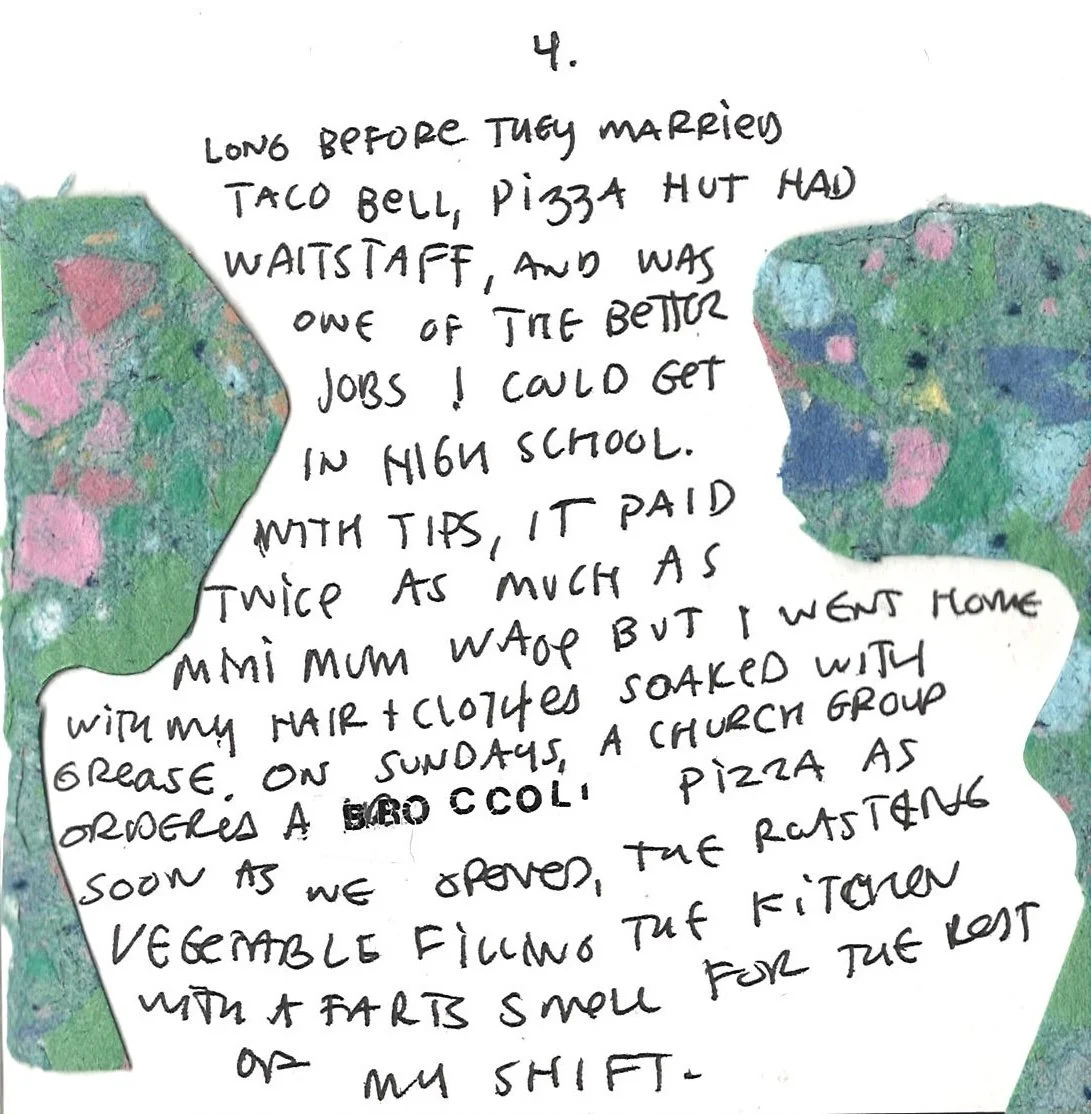 4.
LONG BEFORE THEY MARRIED
TACO BELL, PIZZA HUT HAD
WAITSTAFF, AND WAS
ONE OF THE BETTER
JOBS I COULD GET
IN HIGH SCHOOL.
WITH TIPS, IT PAID
TWICE AS MUCH AS
MINI MUM WAGE BUT I WENT HOME
WITH MY HAIR + CLOTHES SOAKED WITH
GREASE. ON SUNDAYS, A CHURCH GROUP
ORDERED A BROCCOLI PIZZA AS
SOON AS WE OPENED, THE ROASTING
VEGETABLE FILLING THE KITCHEN
WITH A FARTS SMELL FOR THE REST
OF MY SHIFT.